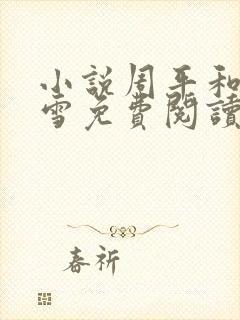 小說周平和
雪免費閱讀
春祈